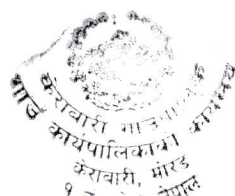 केराबारी गाउँपालिका
गाउँ कार्यपालिकाको कार्यालय
केराबारी, मोरङ
नेपाल